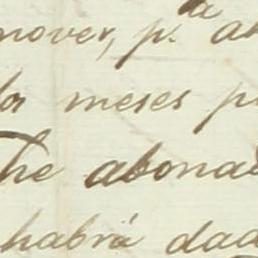 mover, p.ª ab
los meses p
he abonad
habrá dad